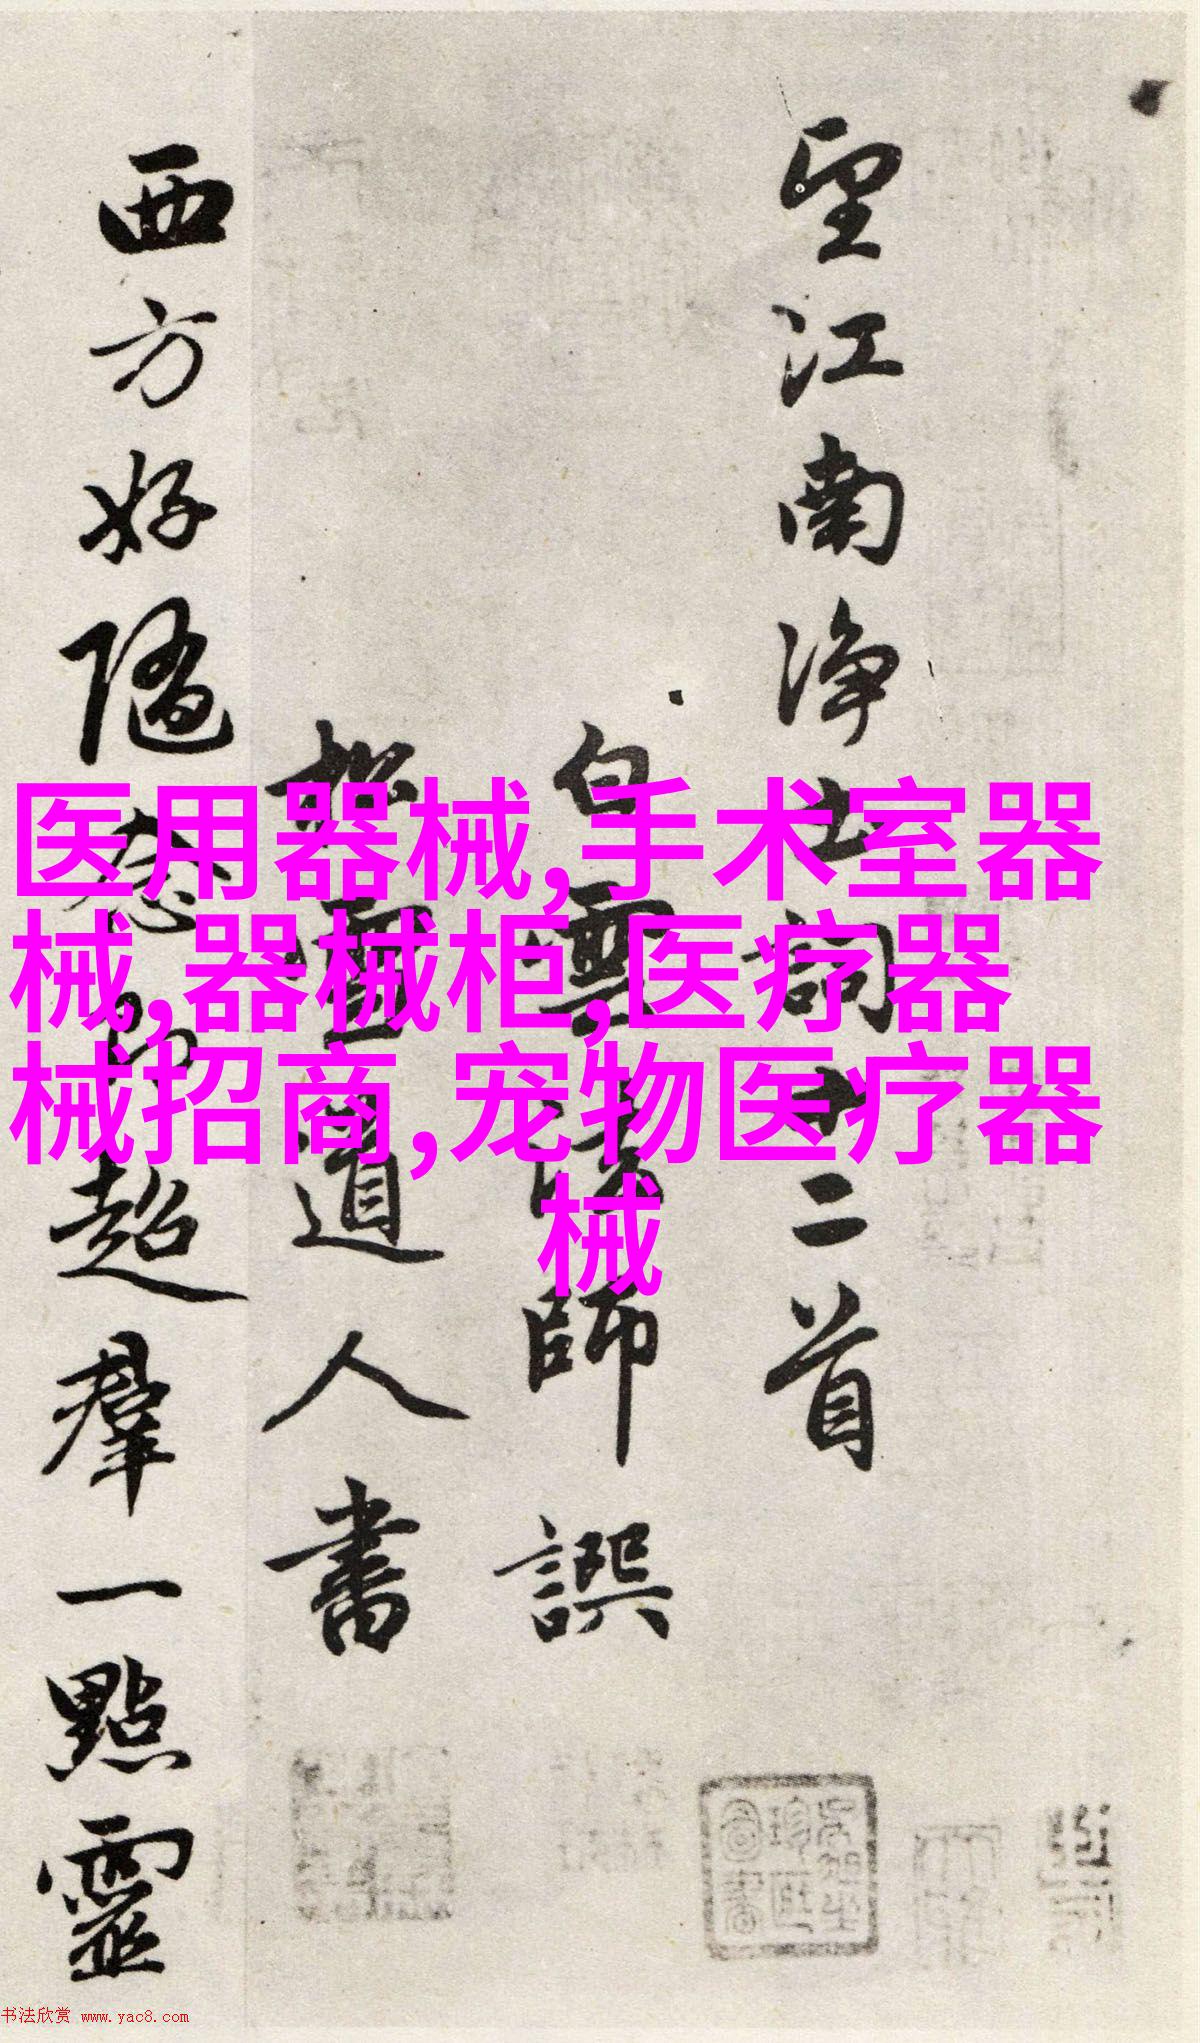 望江南净土詞十二首
白雲法師譔
松雪道人書
西方好隨念即超羣一點靈
医用器械,手术室器
械,器械柜,医疗器
械招商,宠物医疗器
械
书法欣赏 www.yac8.com